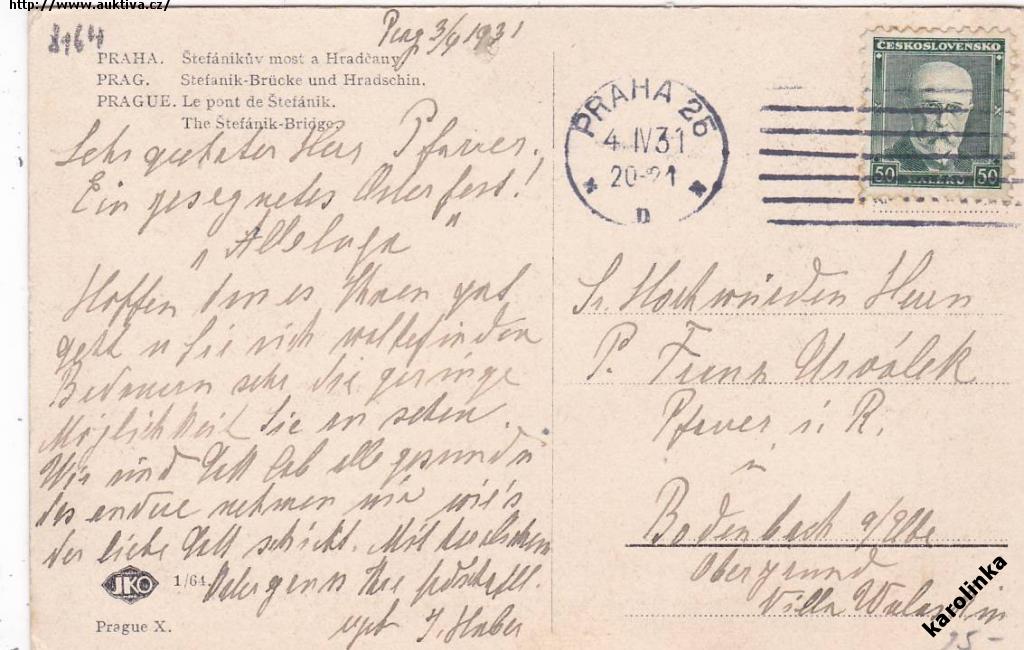 http://www.auktiva.cz/
8164
Prag 3/4 1931
PRAHA. Štefánikův most a Hradčany.
PRAG. Stefanik-Brücke und Hradschin.
PRAGUE. Le pont de Štefánik.
The Štefánik-Bridge.
Sehr geehrter Herr Pfarrer.
Ein gesegnetes Osterfest!
„Alleluja"
Hoffen dass es Ihnen gut
geht u Sie sich wohlbefinden
Bedauern sehr die geringe
Möglichkeit Sie zu sehen.
Wir sind Gott Lob alle gesund u
das andere nehmen wir wie's
der liebe Gott schickt. Mit herzlichem
Ostergruss Ihre
J. Haber
JKO
1/64
Prague X.
PRAHA 25
4. IV 31
20-21
D
ČESKOSLOVENSKO
50 HALÉŘŮ 50
Sr. Hochwürden Herrn
P. Franz
Pfarrer i. R.
in
Bodenbach a/Elbe
Obergrund
Villa
karolinka
25-